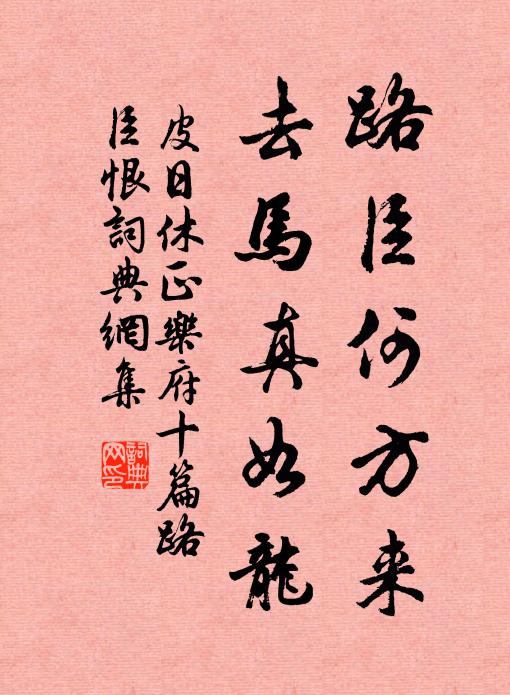 路臣何方来
去馬真如龍
皮日休正樂府十篇路
臣恨詞典網集
詞典網印